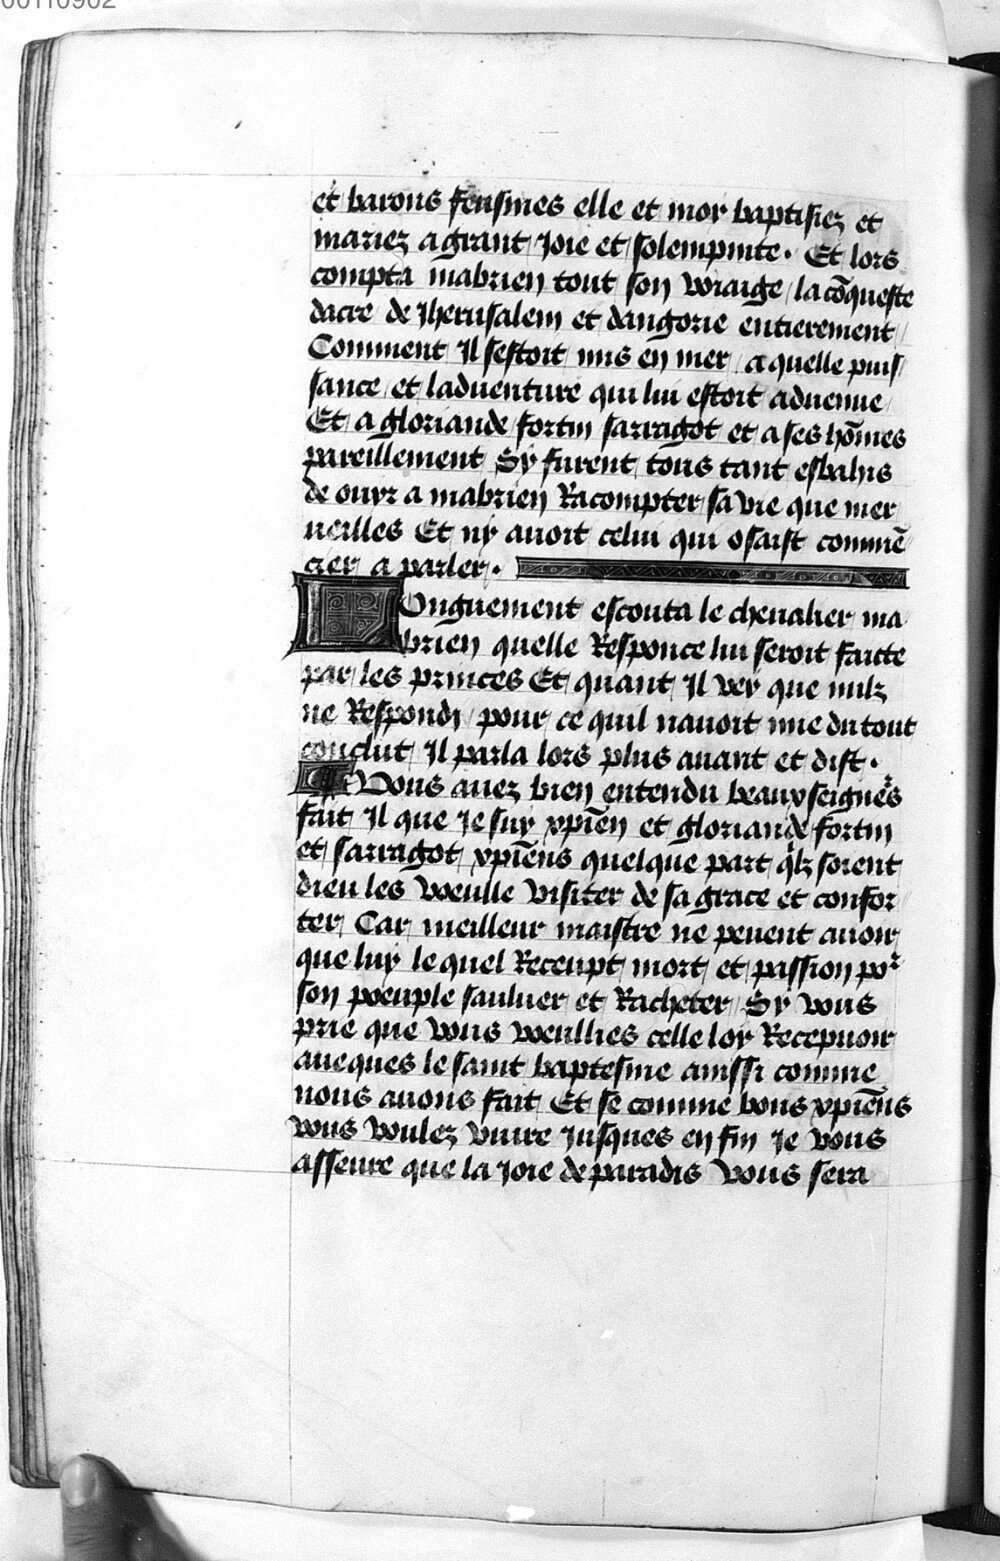 00110902
et barons feusmes elle et moy baptisiez et
mariez a grant Joie et solempnite. Et lors
compta mabrien tout son voiaige / la cōqueste
dacre de Jherusalem et dangorie entierement /
Comment Il sestoit mis en mer / a quelle puis/
sance / et laduenture qui lui estoit aduenue /
Et a gloriande fortin sarragot et a ses hōmes
pareillement Sy furent tous tant esbahis
de ouyr a mabrien Racompter sa vie que mer
ueilles Et ny auoit celui qui osaist commē
cier a parler.
Longuement escouta le cheualier ma
brien quelle Responce lui seroit faicte
par les princes Et quant Il vey que nulz
ne Respondi / pour ce quil nauoit mie du tout
conclut Il parla lors plus auant et dist.
Vous auez bien entendu beaux seignes
fait Il que Je suy xpīen et gloriande fortin
et sarragot xpīens quelque part qlz soient
dieu les voeulle visiter de sa grace et confor
ter Car meilleur maistre ne peuent auoir
que luy le quel Receupt mort et passion por
son poeuple sauluer et Racheter Sy vous
prie que vous voeullies celle loy Recepuoir
aueques le saint baptesme ainssi comme
nous auons fait Et se comme bons xpīens
vous voulez viure Jusques en fin Je vous
asseure que la Joie de paradis vous sera